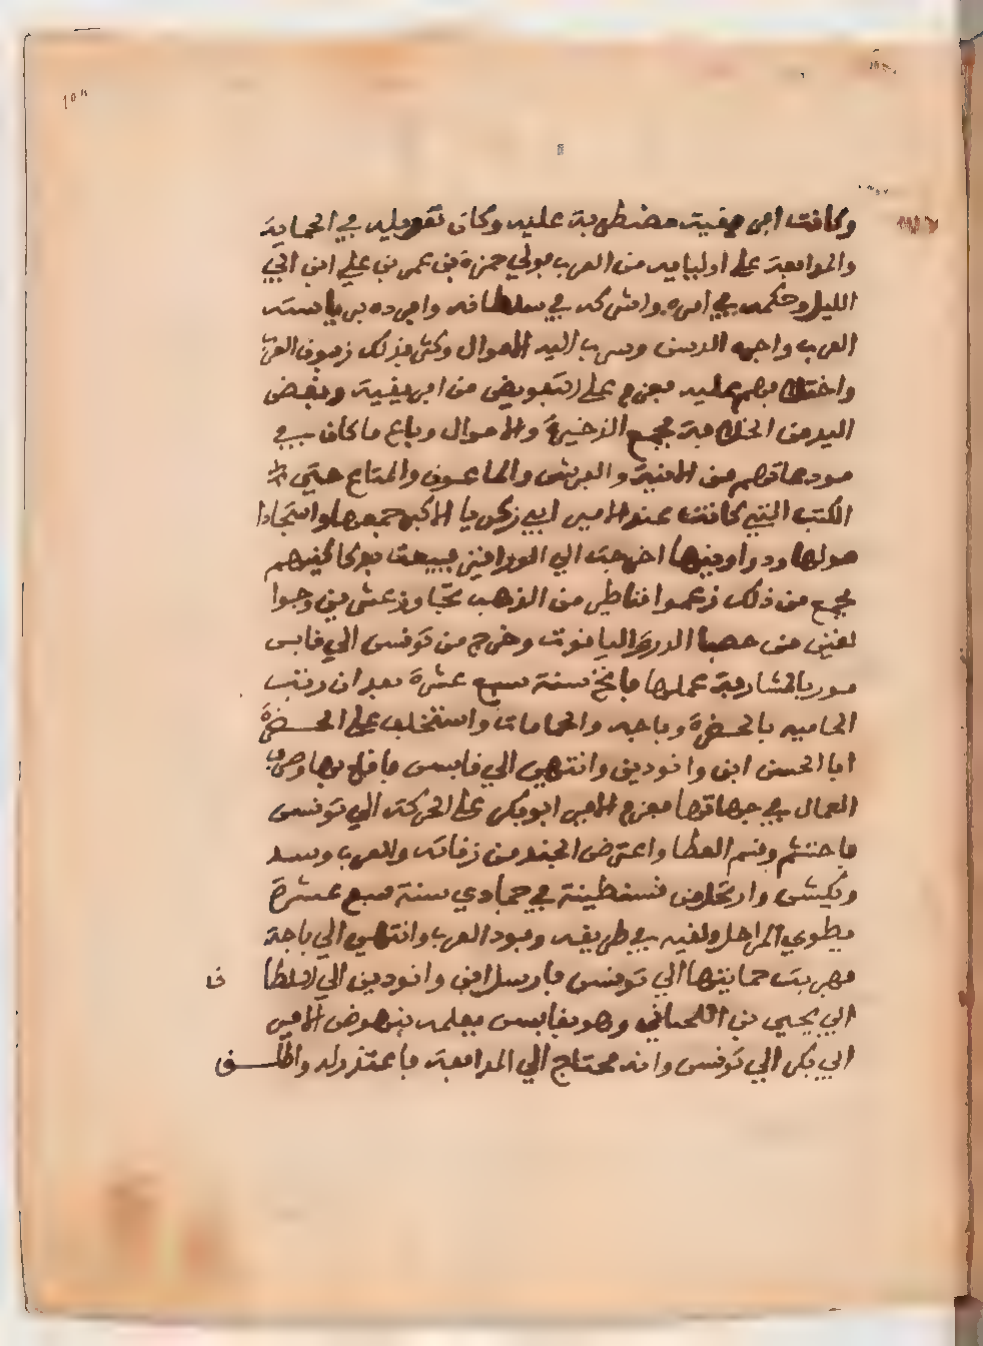 وكانت افريقية مضطربة عليه وكان تعويله في الحماية
والمدافعة على اوليايه من العرب مولي حمزة بن عمر بن علي ابن ابي
الليل وحكمه في امره واشركه في سلطانه وافرده برياسته
العرب واجره الرسن وسرب اليه الاموال وكثر بذلك زبون العرب
واختلافهم عليه فعزم على التفويض من افريقية ونفض
اليد من الخلافة فجمع الذخيرة والاموال وباع ما كان في
مودعاتهم من الانية والفرش والماعون والمتاع حتي
الكتب التي كانت عند الامير ابي زكريا الاكبر جمعها واستجاد
اصولها ودواوينها اخرجت الي الوراقين فبيعت بدكاكينهم
فجمع من ذلك زعموا قناطير من الذهب تجاوز عشرين وجوا
لقين من حصبا الدر والياقوت وخرج من تونس الي قابس
موريا بمشارفة عملها فاتح سنة سبع عشرة بعد ان رتب
الحاميه بالحضرة وباجه والحمامات واستخلف على الحضرة
ابا الحسن ابن وانودين وانتهي الي قابس فاقام بها وصرف
العمال في جهاتها فعزم الامير ابو بكر على الحركة الي تونس
فاحتشم وقسم العطا واعترض الجند من زناته والعرب وسد
ويكش وارتحل من قسنطينة في جمادي سنة سبع عشرة
يطوي المراحل ولقيه في طريقه وفود العرب وانتهي الي باجة
فهربت حاميتها الي تونس فارسل ابن وانودين الي السلطا ن
ابي يحيي بن اللحياني وهو بقابس يعلمه بنهوض الامير
ابي بكر الي تونس وانه محتاج الي المدافعة فاعتذر له واطلق